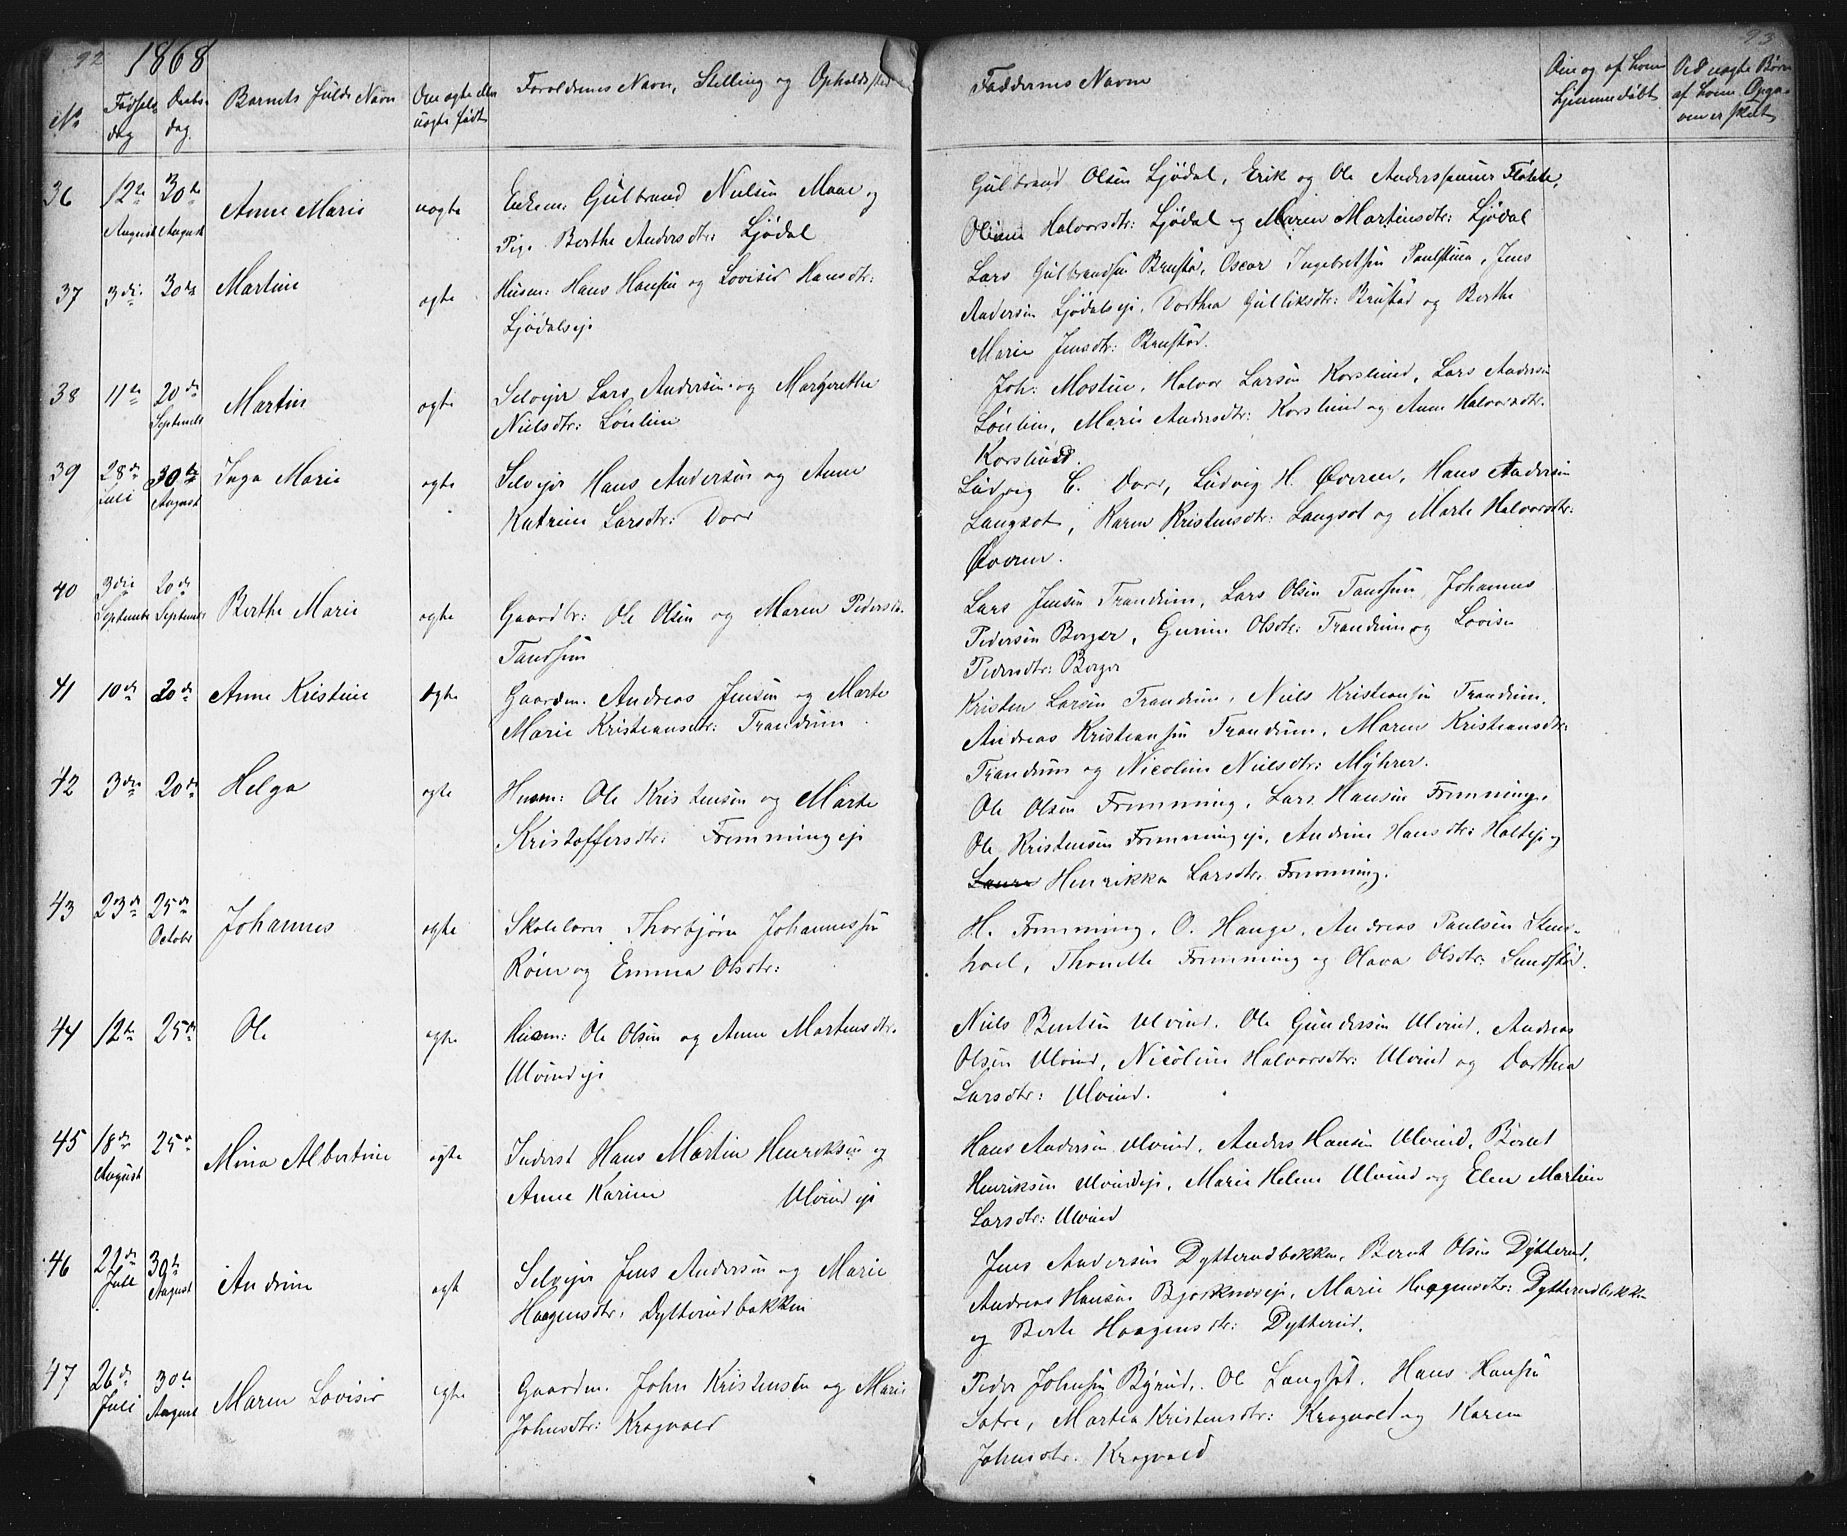 92
1868
No
Fødsels
dag
Daabs
dag
Barnets fulde Navn
Om ægte eller
uægte født
Foreldrenes Navn, Stilling og Opholdssted
36
12te
August
30te
August
Anne Marie
uægte
Enkem: Gulbrand Nielsen Moae og
Pige Berthe Andersdtr: Ljødal
37
3die
30te
Martine
ægte
Husm: Hans Hansen og Lovise Hansdtr:
Ljødalseje
38
11te
20de
September
Martin
ægte
Selvejer Lars Andersen og Margrethe
Nielsdtr: Lønlien
39
28de
Juli
30te
August
Inga Marie
ægte
Selvejer Hans Andersen og Anne
Katrine Larsdtr: Dorr
40
3die
September
20de
September
Berthe Marie
ægte
Gaardbr: Ole Olsen og Maren Pedersdtr.
Tandsem
41
10de
20de
Anne Kristine
ægte
Gaardm. Andreas Jensen og Marte
Marie Kristiansdtr: Trandum
42
3die
20de
Helga
ægte
Husm: Ole Kristensen og Marte
Kristoffersdtr: Fremmingeje
43
23de
25de
October
Johannes
ægte
Skolelærer Thorbjørn Johannessen
Røen og Emma Olsdtr:
44
12te
25de
Ole
ægte
Husm: Ole Olsen og Anne Martensdtr.
Ulvindeje
45
18de
August
25de
Mina Albertine
ægte
Inderst Hans Martin Henriksen og
Anne Karine Ulvindeje
46
22de
Juli
30te
August
Andrine
ægte
Selvejer Jens Andersen og Marie
Haagensdtr: Dytterudbakken
47
26de
Juli
30te
August
Maren Lovise
ægte
Gaardm. John Kristensen og Marie
Johnsdtr: Kragvold
93
Faddernes Navne
Om og af hvem
hjemmedøbt
Ved uægte Børn
af hvem Opga-
ven er skeet
Gulbrand Olsen Ljødal, Erik og Ole Anderssønner Fløtte,
Oliane Halvorsdtr: Ljødal og Maren Martinsdtr: Ljødal
Lars Gulbrandsen Brustad, Oscar Ingebretsen Paulstuen, Jens
Andersen Ljødalseje, Dorthea Gulliksdtr: Brustad og Berthe
Marie Jensdtr: Brustad.
Joh: Mostue, Halvor Larsen Korslund, Lars Andersen
Lønlien, Marie Andersdtr: Korslund og Anne Halvorsdtr.
Korslund.
Ludvig C. Dorr, Ludvig H. Øveren, Hans Andersen
Langset, Karen Kristensdtr: Langset og Marte Halvorsdtr:
Øveren.
Lars Jensen Trandum, Lars Olsen Tandsem, Johannes
Pedersen Borger, Gurine Olsdtr: Trandum og Lovise
Pedersdtr: Borger
Kristen Larsen Trandum, Niels Kristiansen Trandum,
Andreas Kristiansen Trandum, Maren Kristiansdtr:
Trandum og Nicoline Nielsdtr: Myhrer.
Ole Olsen Fremming, Lars Hansen Fremming,
Ole Kristensen Fremmingeje, Andrine Hansdtr: Holteje og
Laura Henrikka Larsdtr. Fremming.
H. Fremming, O. Hauge, Andreas Paulsen Sten-
hoel, Thonette Fremming og Olava Olsdtr: Sundstød.
Niels Bentsen Ulvind, Ole Gundersen Ulvind, Andreas
Olsen Ulvind, Nicoline Halvorsdtr: Ulvind og Dorthea
Larsdtr: Ulvind.
Hans Andersen Ulvind, Anders Hansen Ulvind, Bernt
Henriksen Ulvindeje, Marie Helene Ulvind og Elen Martine
Larsdtr: Ulvind
Jens Andersen Dytterudbakken, Bernt Olsen Dytterud,
Andreas Hansen Bjørkneseje, Marie Haagensdtr: Dytterudbakken
og Berte Haagensdtr: Dytterud.
Peder Johnsen Byrud, Ole Langset, Hans Hansen
Sætre, Martea Kristensdtr: Kragvold og Karen
Johnsdtr. Kragvold